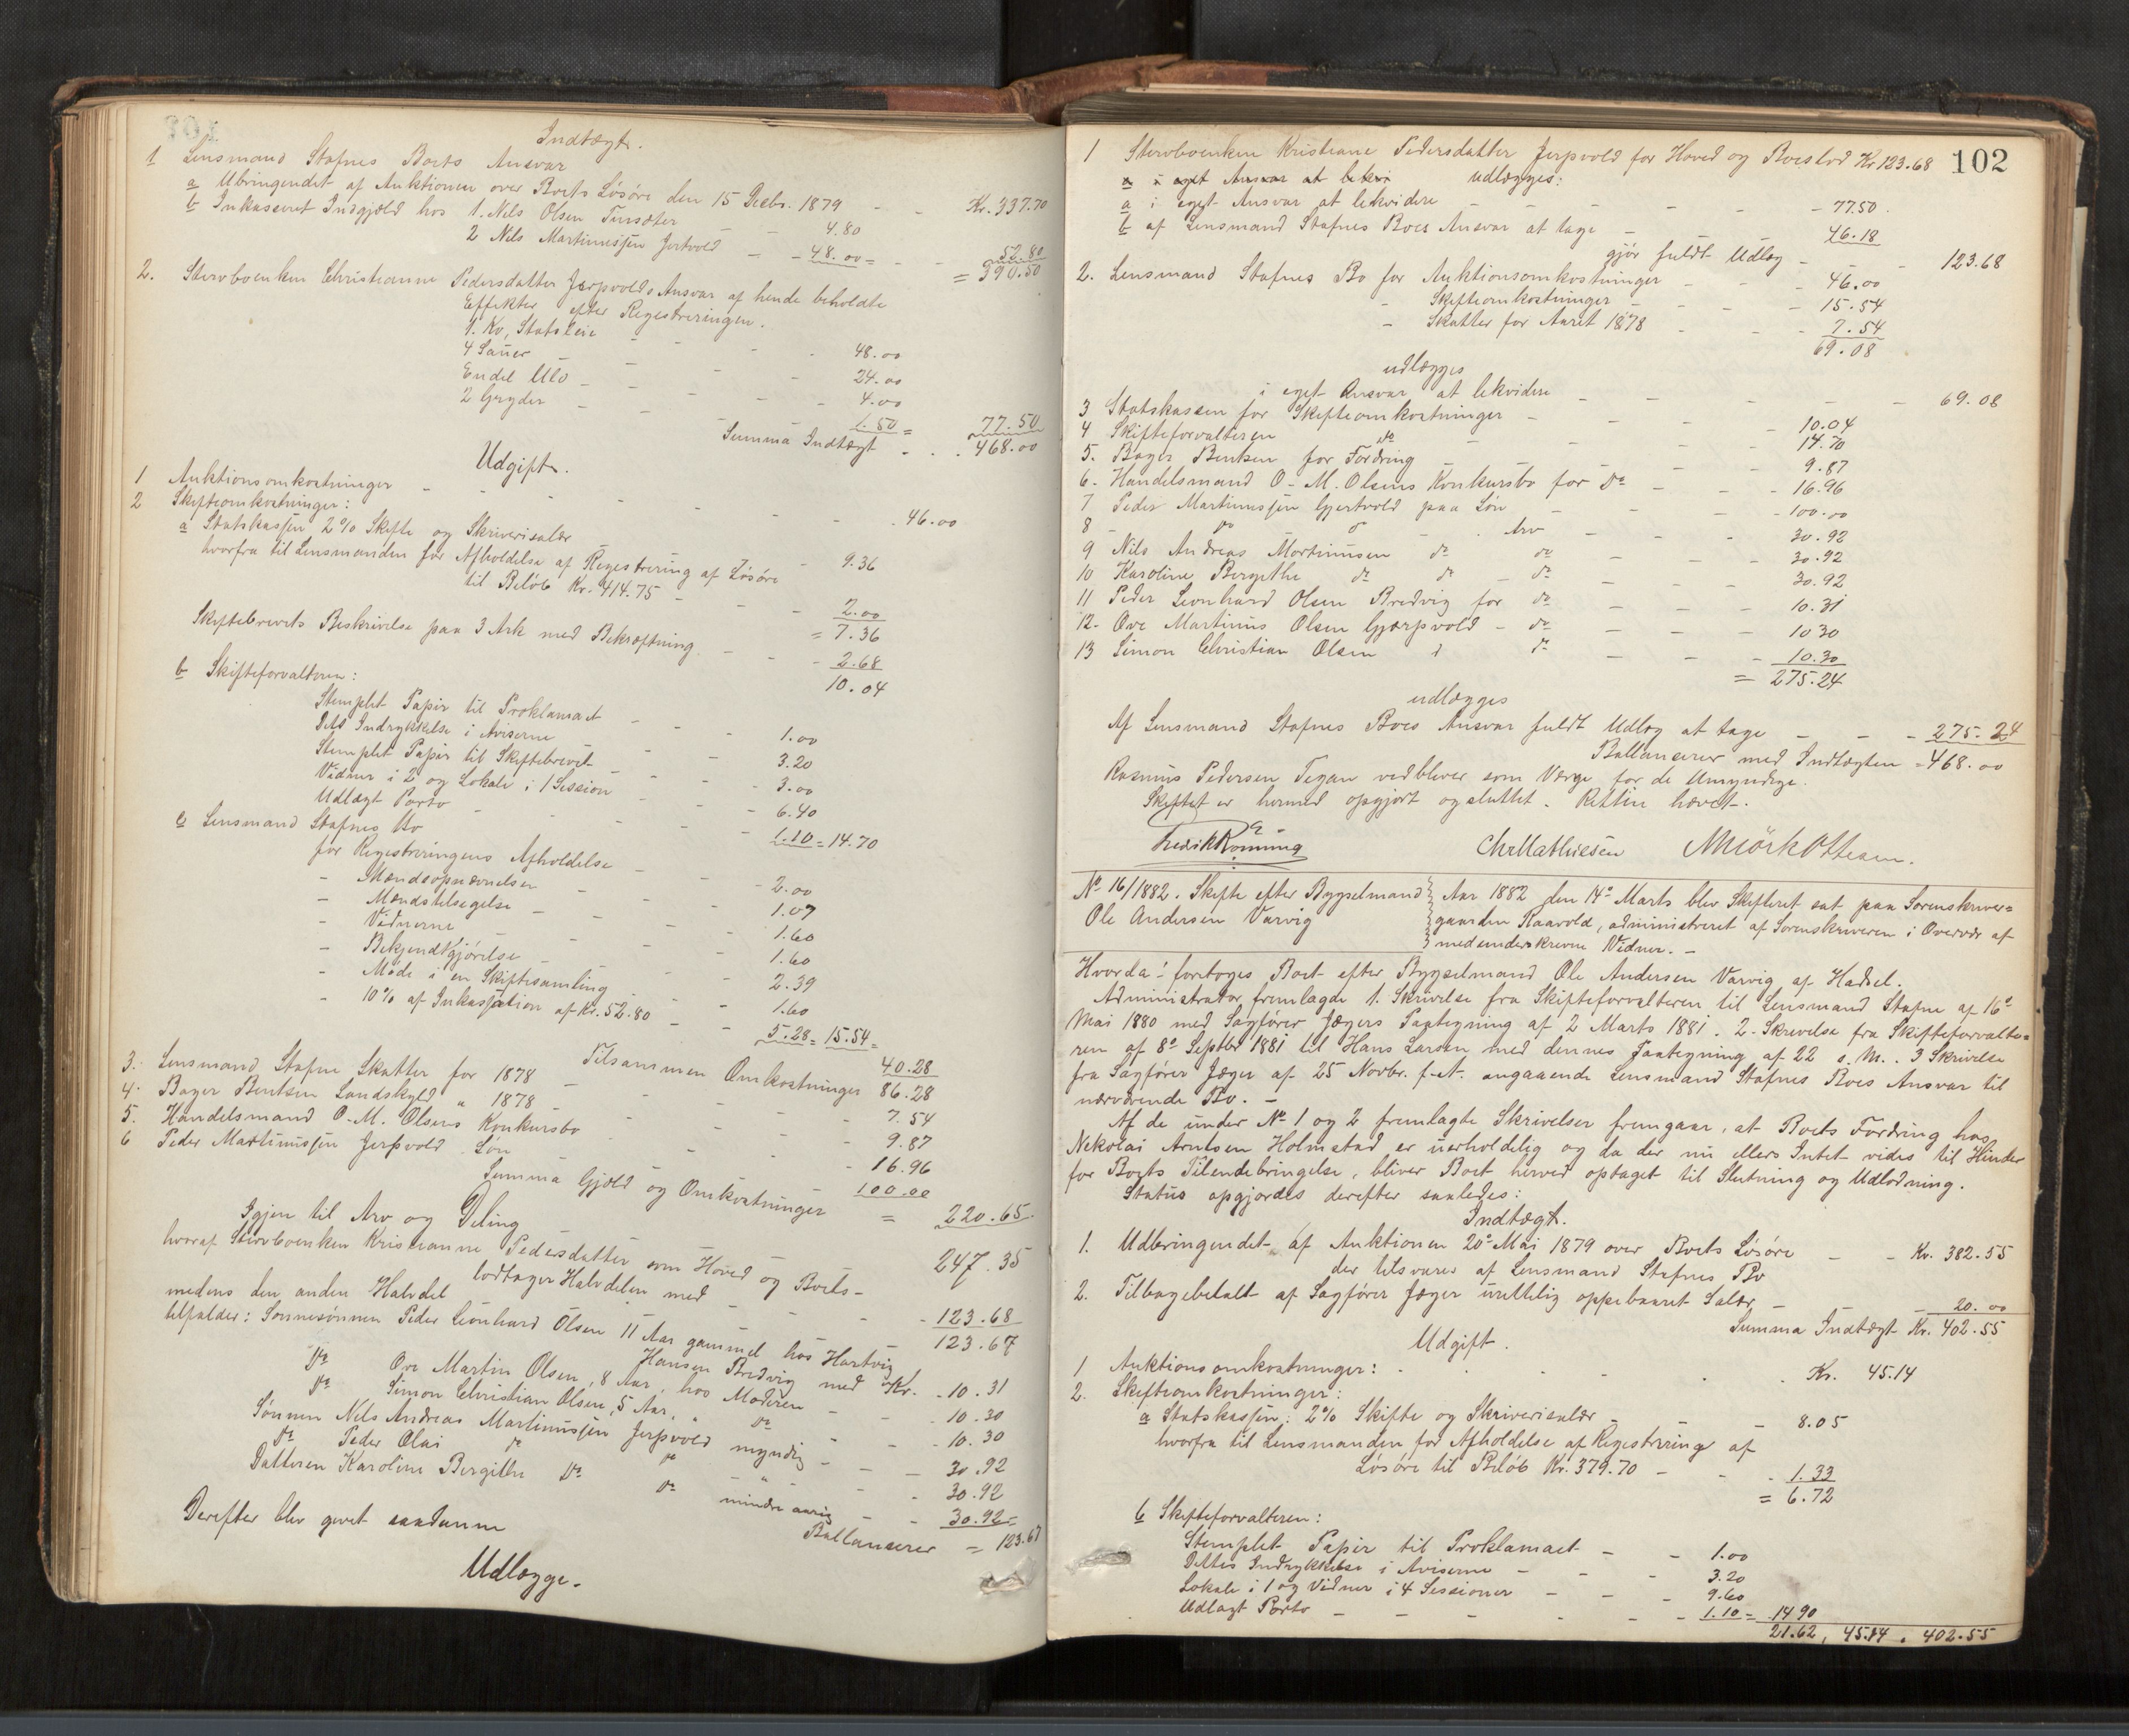 Indtægt.
1 Lensmand Stafnes Boets Ansvar
a Udbringendet af Auktionen over Boets Løsøre den 15 Decbr. 1879 - - Kr. 337.70
b Inkasseret Indgjæld hos 1. Nils Olsen - - 4.80
2 Nils Martinussen Jertvold - - 48.00 = - - 52.80
= 390.50
2. Stervboenken Christianne Pedersdatter Jerpvolds Ansvar af hende beholdte
Effekter efter Registreringen.
1. Ko, Statsleie - - - 48.00
4 Sauer - - - 24.00
Endel Uld - - - 4.00
2 Gryder - - - 1.50 = 77.50
Summa Indtægt . . . 468.00
Udgift.
1 Auktionsomkostninger - - - . 46.00
2 Skifteomkostninger:
a Statskassen 2% Skifte og Skriversalær - 9.36
hvorfra til Lensmanden for Afholdelse af Registrering af Løsøre
til Beløb Kr. 414.75 - - - 2.00
= 7.36
Skiftebrevets Beskrivelse paa 3 Ark med Bekræftning. - - - 2.68
10.04
b Skifteforvalteren:
Stemplet Papir til Proklamaet - - - 1.00
Dets Indrykkelse i Aviserne - - 3.20
Stemplet Papir til Skiftebrevet - - 3.00
Vidner i 2 og Lokale i 1 Session - - 6.40
Udlagt Porto - - - 1.10 = 14.70
c Lensmand Stafnes Bo
for Registreringens Afholdelse - - 2.00
- Mændsopnævnelsen - - 1.07
- Mændstilsigelse - - 1.60
- Vidnerne - - - 1.60
- Bekjendtgjørelse - - 2.39
- Møde i en Skiftesamling - - 1.60
- 10% af Inkassation af Kr. 52.80 - - 5.28 = 15.54 =
40.28
Tilsammen Omkostninger 86.28
3. Lensmand Stafne Skatter for 1878 - - - 7.54
4. Bager Bentsen Landskyld " 1878 - - - 9.87
5. Handelsmand O. M. Olsens Konkursbo - - - 16.96
6 Peder Martinussen Jerpvold Løn - - 100.00
Summa Gjæld og Omkostninger = 220.65.
Igjen til Arv og Deling 247.35
hvoraf Stervboenken Kristianne Pedersdatter som Hoved og Boets-
lodtager Halvdelen med - - - 123.68
medens den anden Halvdel 123.67
tilfalder: Sønnesønnen Peder Leonhard Olsen 11 Aar gammel hos Hartvig
Hansen Bredvig med Kr. - 10.31
Do Ove Martin Olsen, 8 Aar, hos Moderen - - 10.30
Do Simon Christian Olsen, 5 Aar, " Do - - 10.30
Sønnen Nils Andreas Martinussen Jerpvold myndig - - 30.92
Do Peder Olai Do Do " - - 30.92
Datteren Karoline Bergithe Do Do mindreaarig - - 30.92 =
Ballancerer = 123.67
Derefter blev gjort saadanne
Udlægge.
102
1 Stervboenken Kristiane Pedersdatter Jerpvold for Hoved og Boeslod Kr 123.68
a i eget Ansvar at likvi udlægges:
a i eget Ansvar at likvidere - - - 77.50
b af Lensmand Stafnes Boes Ansvar at tage - 46.18
gjør fuldt Udlæg - - 123.68
2. Lensmand Stafnes Bo for Auktionsomkostninger - - - 46.00
- Skifteomkostninger - - - 15.54
- Skatter for Aaret 1878 - - 7.54
69.08
udlægges
i eget Ansvar at likvidere - - - - 69.08
3 Statskassen for Skifteomkostninger - - - 10.04
4 Skifteforvalteren Do - - - 14.70
5. Bager Bentsen for Fordring - - - 9.87
6. Handelsmand O. M. Olsens Konkursbo for Do - - - 16.96
7 Peder Martinussen Gjertvold paa Løn - - 100.00
8 - Do - Arv - - - 30.92
9 Nils Andreas Martinusen Do Do - - - 30.92
10 Karoline Bergithe Do Do - Do - - - 30.92
11 Peder Leonhard Olsen Bredvig for Do - - - 10.31
12. Ove Martinus Olsen Gjærpvold - Do - - - 10 30
13 Simon Christian Olsen Do - - - 10.30
= 275.24
udlægges
Af Lensmand Stafnes Boes Ansvar fuldt Udlæg at tage - - - 275.24
Ballancerer med Indtægten = 468.00
Rasmus Pedersen Tegan vedbliver som Værge for de Umyndige.
Skiftet er hermed opgjort og sluttet. Retten hævet.
Fredrik Rømming Chr Mathiesen Mörk Ottesen.
No 16/1882. Skifte efter Bygselmand
Ole Andersen Varvig
Aar 1882 den 14de Marts blev Skifteret sat paa Sorenskriver=
gaarden Raavold, administreret af Sorenskriveren i Overvær af
medunderskrevne Vidner. -
Hvorda: foretoges Boet efter Bygselmand Ole Andersen Varvig af Hadsel.
Administrator fremlagde 1. Skrivelse fra Skifteforvalteren til Lensmand Stafne af 16de
Mai 1880 med Sagfører Jægers Paategning af 2 Marts 1881. 2. Skrivelse fra Skifteforvalte=
ren af 8de Septbr 1881 til Hans Larsen med dennes Paategning af 22 s. M.. 3 Skrivelse
fra Sagfører Jæger af 25 Novbr. f. A. angaaende Lensmand Stafnes Boes Ansvar til
nærværende Bo. -
Af de under No 1 og 2 fremlagte Skrivelser fremgaar, at Boets Fordring hos
Nekolai Arntsen Holmstad er uerholdelig og da der nu ellers Intet vides til Hinder
for Boets Tilendebringelse, bliver Boet herved optaget til Slutning og Udlodning.
Status opgjordes derefter saaledes:
Indtægt.
1. Udbringendet af Auktionen 20de Mai 1879 over Boets Løsøre - - Kr. 382.55
der tilsvares af Lensmand Stafnes Bo
2. Tilbagebetalt af Sagfører Jæger urettelig oppebaaret Salær - - - 20.00
Summa Indtægt Kr. 402.55
Udgift.
1 Auktionsomkostninger: . . . . Kr. 45.14
2. Skifteomkostninger:
a Statskassen: 2% Skifte og Skriversalær - - - 8.05
hvorfra til Lensmanden for Afholdelse af Registrering af
Løsøre til Beløb Kr. 379.70 - - . 1.33
= 6.72
b Skifteforvalteren:
Stemplet Papir til Proklamaet - - 1.00
Dettes Indrykkelse i Aviserne - - - 3.20
Lokale i 1 og Vidner i 4 Sessioner - - - 9.60
Udlagt Porto - - - - 1.10 = 14.90
21.62, 45.14. 402.55